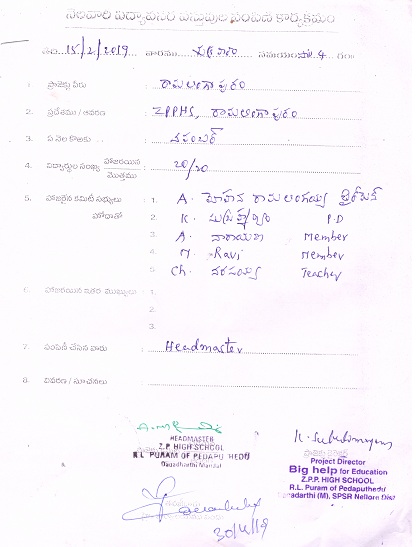 నెలవారి విద్యావసర వస్తువుల పంపిణి కార్యక్రమం
తేది 15/2/2019 వారము సమయం సా. 4 గం
1. ప్రాజెక్టు పేరు రామలింగాపురం
2. ప్రదేశము / ఆవరణ ZPPHS, రామలింగాపురం
3. ఏ నెల కొరకు నవంబర్
4. విద్యార్థుల సంఖ్య హాజరయిన / మొత్తము 20/20
5. హాజరైన కమిటీ సభ్యులు : 1. A. మోహన రామలింగయ్య
హోదాతో 2. K. సుబ్రహ్మణ్యం P.D
3. A. నారాయణ Member
4. M. Ravi Member
5. Ch. నరసయ్య Teacher
6. హాజరయిన ఇతర ముఖ్యులు : 1.
2.
3.
7. పంపిణీ చేసిన వారు : Headmaster
8. వివరణ / సూచనలు :
HEADMASTER
Z.P. HIGH SCHOOL
R.L PURAM OF PEDAPUTHEDU
Dagadharthi Mandal
K. Subrahmanyam
Project Director
Big help for Education
Z.P.P. HIGH SCHOOL
R.L. Puram of Pedaputhedu
Dagadarthi (M), SPSR Nellore Dist
30/4/19